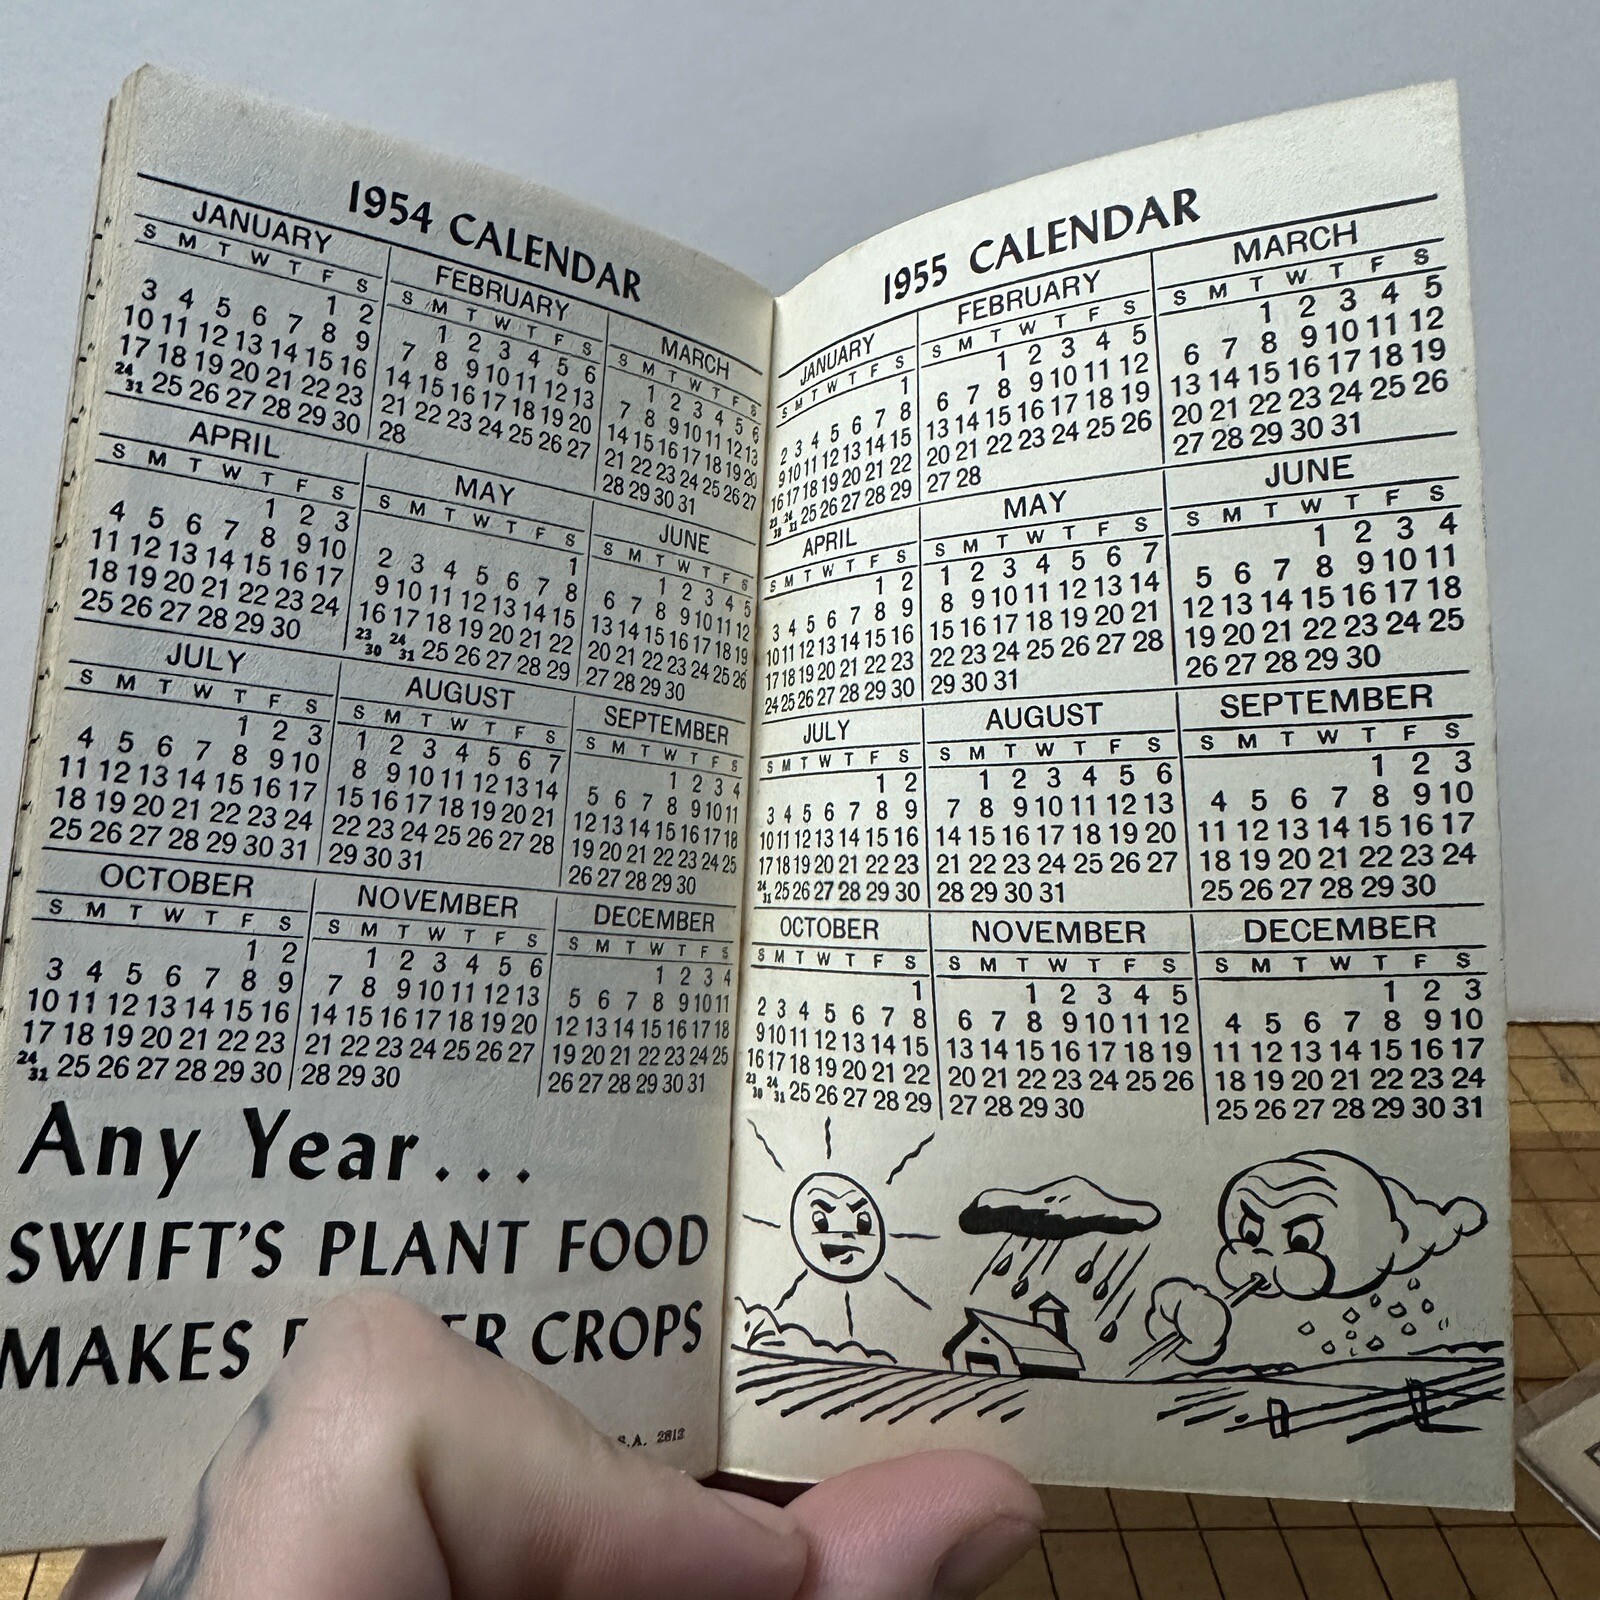 1954 CALENDAR
JANUARY
S M T W T F S
1 2
3 4 5 6 7 8 9
10 11 12 13 14 15 16
17 18 19 20 21 22 23
24/31 25 26 27 28 29 30
FEBRUARY
S M T W T F S
1 2 3 4 5 6
7 8 9 10 11 12 13
14 15 16 17 18 19 20
21 22 23 24 25 26 27
28
MARCH
S M T W T F S
1 2 3 4 5 6
7 8 9 10 11 12 13
14 15 16 17 18 19 20
21 22 23 24 25 26 27
28 29 30 31
APRIL
S M T W T F S
1 2 3
4 5 6 7 8 9 10
11 12 13 14 15 16 17
18 19 20 21 22 23 24
25 26 27 28 29 30
MAY
S M T W T F S
1
2 3 4 5 6 7 8
9 10 11 12 13 14 15
16 17 18 19 20 21 22
23/30 24/31 25 26 27 28 29
JUNE
S M T W T F S
1 2 3 4 5
6 7 8 9 10 11 12
13 14 15 16 17 18 19
20 21 22 23 24 25 26
27 28 29 30
JULY
S M T W T F S
1 2 3
4 5 6 7 8 9 10
11 12 13 14 15 16 17
18 19 20 21 22 23 24
25 26 27 28 29 30 31
AUGUST
S M T W T F S
1 2 3 4 5 6 7
8 9 10 11 12 13 14
15 16 17 18 19 20 21
22 23 24 25 26 27 28
29 30 31
SEPTEMBER
S M T W T F S
1 2 3 4
5 6 7 8 9 10 11
12 13 14 15 16 17 18
19 20 21 22 23 24 25
26 27 28 29 30
OCTOBER
S M T W T F S
1 2
3 4 5 6 7 8 9
10 11 12 13 14 15 16
17 18 19 20 21 22 23
24/31 25 26 27 28 29 30
NOVEMBER
S M T W T F S
1 2 3 4 5 6
7 8 9 10 11 12 13
14 15 16 17 18 19 20
21 22 23 24 25 26 27
28 29 30
DECEMBER
S M T W T F S
1 2 3 4
5 6 7 8 9 10 11
12 13 14 15 16 17 18
19 20 21 22 23 24 25
26 27 28 29 30 31
Any Year...
SWIFT'S PLANT FOOD
MAKES CROPS
S.A.
1955 CALENDAR
JANUARY
S M T W T F S
1
2 3 4 5 6 7 8
9 10 11 12 13 14 15
16 17 18 19 20 21 22
23/30 24/31 25 26 27 28 29
FEBRUARY
S M T W T F S
1 2 3 4 5
6 7 8 9 10 11 12
13 14 15 16 17 18 19
20 21 22 23 24 25 26
27 28
MARCH
S M T W T F S
1 2 3 4 5
6 7 8 9 10 11 12
13 14 15 16 17 18 19
20 21 22 23 24 25 26
27 28 29 30 31
APRIL
S M T W T F S
1 2
3 4 5 6 7 8 9
10 11 12 13 14 15 16
17 18 19 20 21 22 23
24 25 26 27 28 29 30
MAY
S M T W T F S
1 2 3 4 5 6 7
8 9 10 11 12 13 14
15 16 17 18 19 20 21
22 23 24 25 26 27 28
29 30 31
JUNE
S M T W T F S
1 2 3 4
5 6 7 8 9 10 11
12 13 14 15 16 17 18
19 20 21 22 23 24 25
26 27 28 29 30
JULY
S M T W T F S
1 2
3 4 5 6 7 8 9
10 11 12 13 14 15 16
17 18 19 20 21 22 23
24/31 25 26 27 28 29 30
AUGUST
S M T W T F S
1 2 3 4 5 6
7 8 9 10 11 12 13
14 15 16 17 18 19 20
21 22 23 24 25 26 27
28 29 30 31
SEPTEMBER
S M T W T F S
1 2 3
4 5 6 7 8 9 10
11 12 13 14 15 16 17
18 19 20 21 22 23 24
25 26 27 28 29 30
OCTOBER
S M T W T F S
1
2 3 4 5 6 7 8
9 10 11 12 13 14 15
16 17 18 19 20 21 22
23/30 24/31 25 26 27 28 29
NOVEMBER
S M T W T F S
1 2 3 4 5
6 7 8 9 10 11 12
13 14 15 16 17 18 19
20 21 22 23 24 25 26
27 28 29 30
DECEMBER
S M T W T F S
1 2 3
4 5 6 7 8 9 10
11 12 13 14 15 16 17
18 19 20 21 22 23 24
25 26 27 28 29 30 31